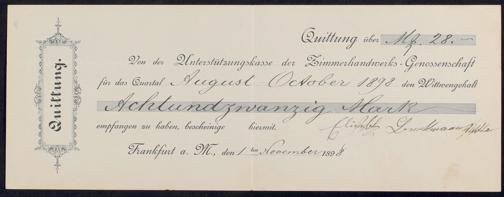 Quittung.
Quittung über Mk. 28.—
Von der Unterstützungskasse der Zimmerhandwerks-Genossenschaft
für das Quartal August-October 1898 den Wittwengehalt
Achtundzwanzig Mark
empfangen zu haben, bescheinige hiermit.
Frankfurt a. M., den 1ten November 1898